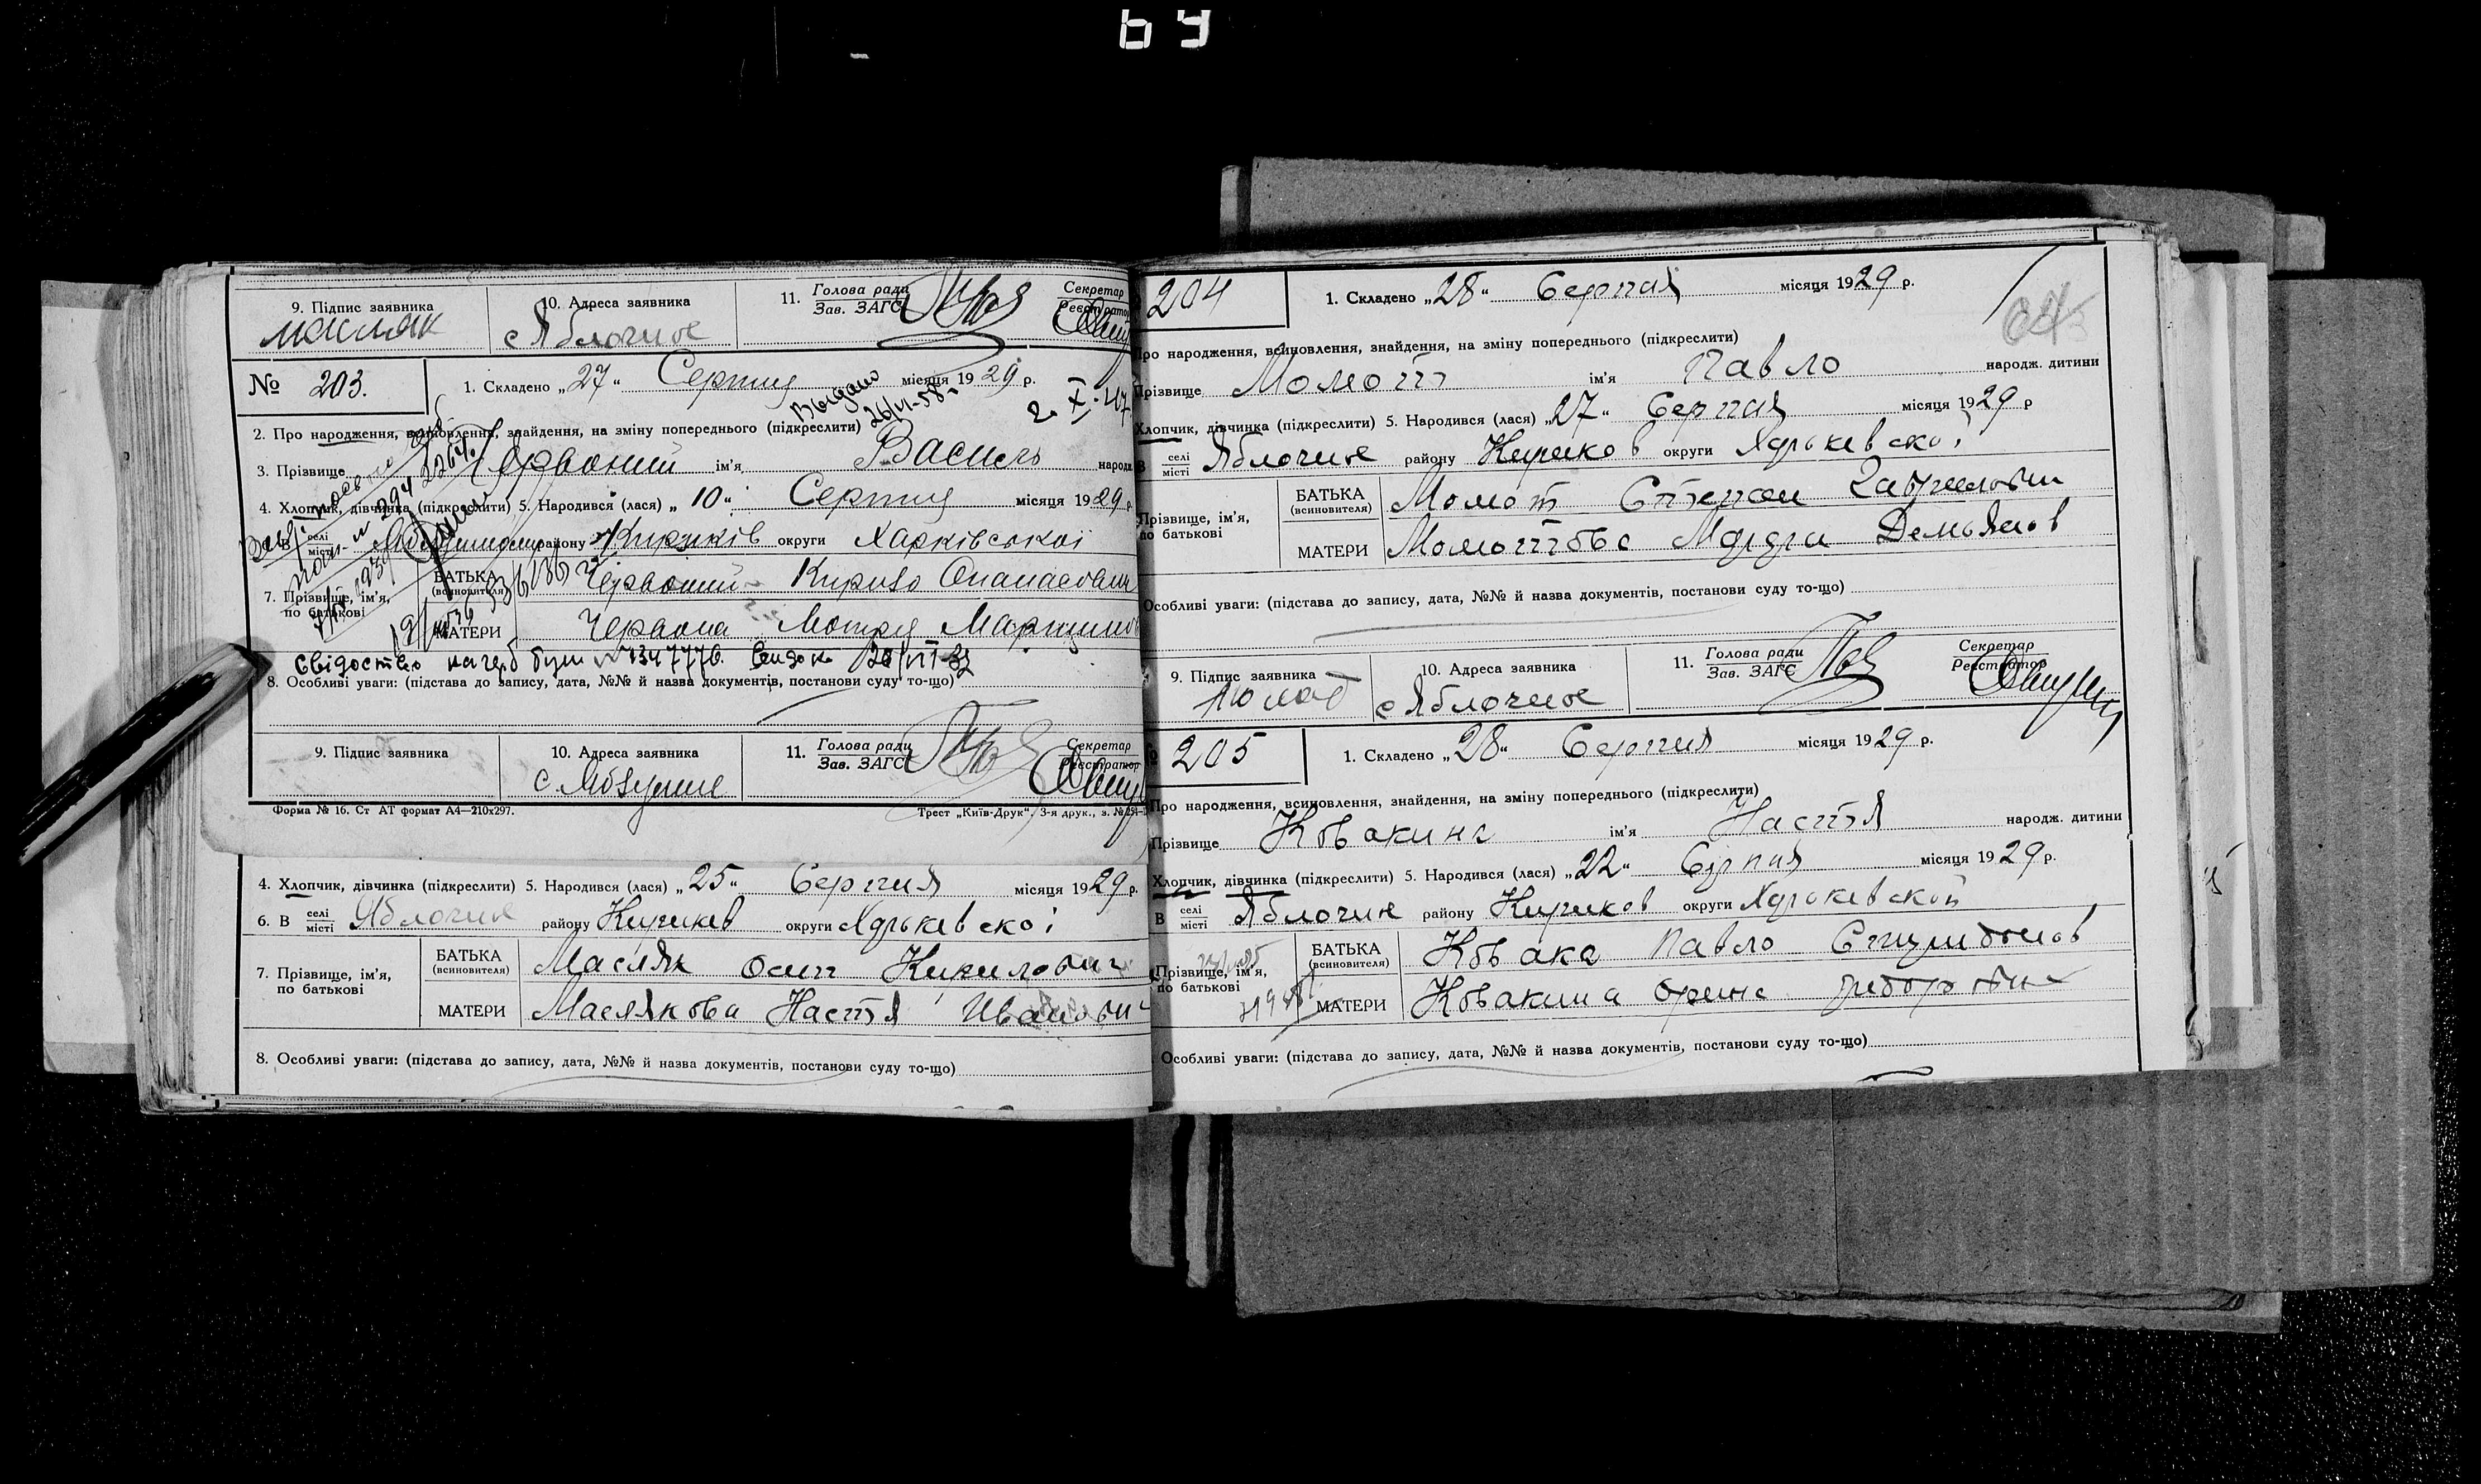 69
9. Підпис заявника 10. Адреса заявника 11. Голова ради Зав. ЗАГС Секретар Реєстратор
Масляк с Яблочне
№ 203. 1. Складено „27“ Серпня місяця 1929 р.
Выдано 26/VI-58
2. X. 47
2. Про народження, всиновлення, знайдення, на зміну попереднього (підкреслити)
3. Прізвище Червоний ім'я Василь народж.
4. Хлопчик, дівчинка (підкреслити) 5. Народився (лася) „10“ Серпня місяця 1929 р
6. В селі місті району Кириків округи Харківської
7. Прізвище, ім'я, по батькові
БАТЬКА (всиновителя) Червоний Кирило Опанасович
МАТЕРИ Червона Мотря
Свідоство на герб
8. Особливі уваги: (підстава до запису, дата, №№ й назва документів, постанови суду то-що)
9. Підпис заявника 10. Адреса заявника 11. Голова ради Зав. ЗАГС Секретар Реєстратор
с.
Форма № 16. Ст АТ формат А4—210x297. Трест „Київ-Друк“. 3-я друк., з. №
4. Хлопчик, дівчинка (підкреслити) 5. Народився (лася) „25“ Серпня місяця 1929 р.
6. В селі місті Яблочне району Кириков округи Харькевскоі
7. Прізвище, ім'я, по батькові
БАТЬКА (всиновителя) Масляк Осип Кирилович
МАТЕРИ Маслякова Настя
8. Особливі уваги: (підстава до запису, дата, №№ й назва документів, постанови суду то-що)
204 1. Складено „28“ Серпня місяця 1929 р.
Про народження, всиновлення, знайдення, на зміну попереднього (підкреслити)
Прізвище Момот ім'я Павло народж. дитини
Хлопчик, дівчинка (підкреслити) 5. Народився (лася) „27“ Серпня місяця 1929 р
В селі місті Яблочне району Кириков округи Харькевскоі
Прізвище, ім'я, по батькові
БАТЬКА (всиновителя) Момот Степан
МАТЕРИ Момотова Демьянов
Особливі уваги: (підстава до запису, дата, №№ й назва документів, постанови суду то-що)
9. Підпис заявника 10. Адреса заявника 11. Голова ради Зав. ЗАГС Секретар Реєстратор
с Яблочне
205 1. Складено „28“ Серпня місяця 1929 р.
Про народження, всиновлення, знайдення, на зміну попереднього (підкреслити)
Прізвище ім'я Настя народж. дитини
Хлопчик, дівчинка (підкреслити) 5. Народився (лася) „22“ Серпня місяця 1929 р.
В селі місті Яблочне району Кириков округи Харькевской
Прізвище, ім'я, по батькові
БАТЬКА (всиновителя) Павло
МАТЕРИ
Особливі уваги: (підстава до запису, дата, №№ й назва документів, постанови суду то-що)